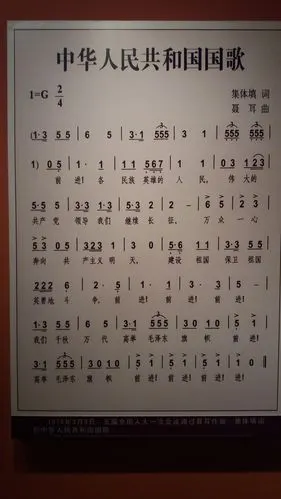 中华人民共和国国歌
1=G 2/4
集体填 词
聂 耳 曲
(1·3 5 5 | 6 5 | 3·1 555 555 | 3 1 | 555 555
1) 05 | 1· 1 | 1 1 567 | 1 1 | 03 123
前进! 各 民族 英雄的 人 民, 伟大的
5 5 | 3·3 1·3 | 5·3 2 | 2 - | 6 5
共产 党 领导 我们 继续 长征, 万众 一心
2 3 | 5 3 05 | 3231 3 | 3 0 | 5·6 1 1 | 3·3 5 5
奔向 共 产主义明 天, 建设 祖国 保卫 祖国
222 6 | 2· 5 | 1· 1 | 3· 3 | 5 -
英勇地 斗 争。 前进! 前进! 前进!
1·3 5 5 | 6 5 | 3·1 555 | 3 0 1 0 | 5 1
我们 千秋 万代 高举 毛泽东 旗帜 前进!
3·1 555 | 3 0 1 0 | 5 1 | 5 1 | 5 1 | 1 0
高举 毛泽东 旗帜 前进! 前进! 前进! 进!
五届全国人大一次会议通过聂耳作曲、集体填词
的中华人民共和国国歌